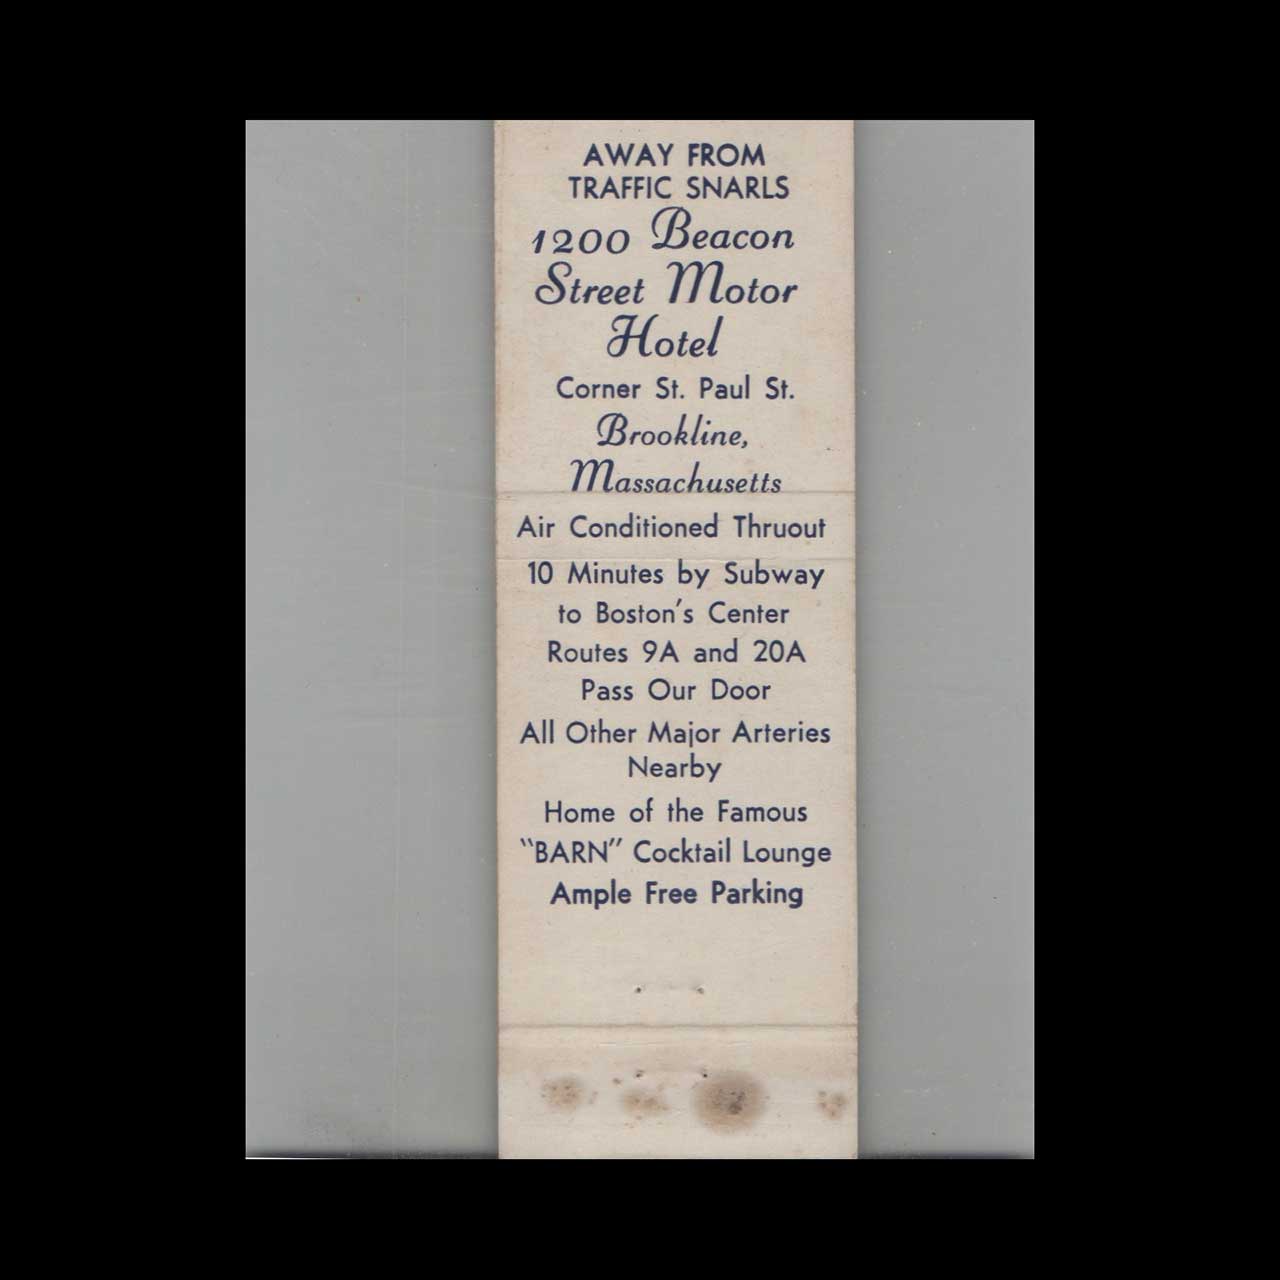 AWAY FROM
TRAFFIC SNARLS
1200 Beacon
Street Motor
Hotel
Corner St. Paul St.
Brookline,
Massachusetts
Air Conditioned Thruout
10 Minutes by Subway
to Boston's Center
Routes 9A and 20A
Pass Our Door
All Other Major Arteries
Nearby
Home of the Famous
"BARN" Cocktail Lounge
Ample Free Parking